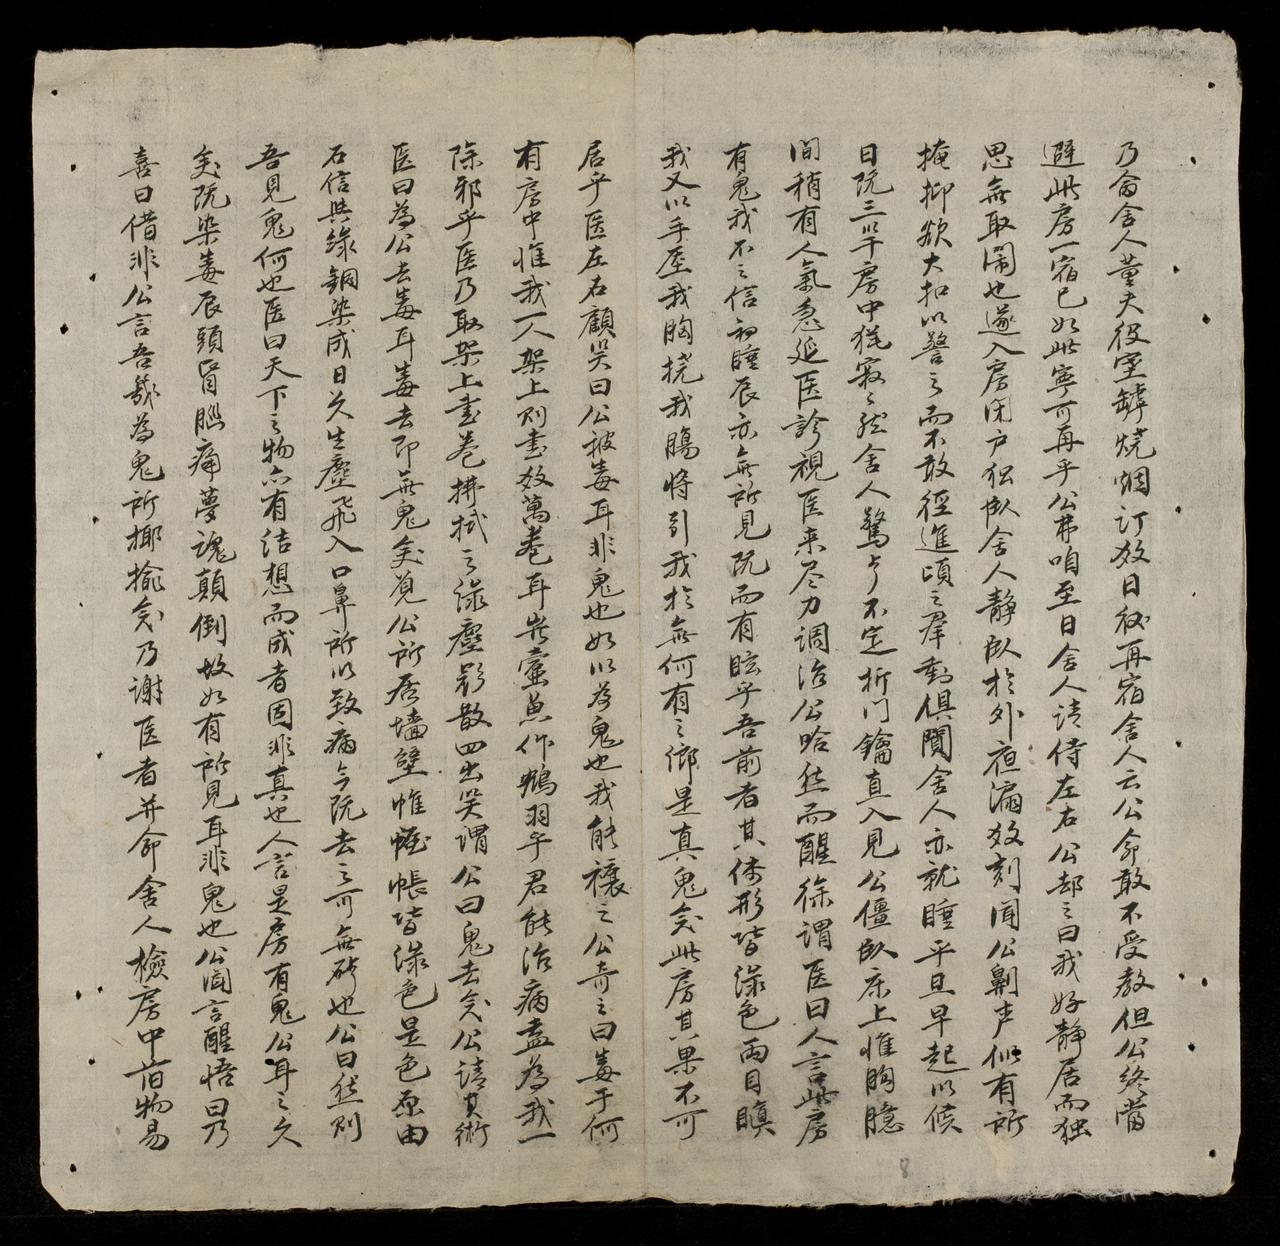 乃命舍人董夫役室罅燒烟訂数日後再宿舍人云公命敢不受教但公終當
避此房一宿已如此寧可再乎公弗咱至日舍人請侍左右公却之曰我好静居而独
思無取閙也遂入房闭户独臥舍人静臥於外夜漏数刻聞公鼾声似有所
掩抑欲大扣以警之而不敢徑進頃之羣動俱闃舍人亦就睡乎旦早起以候
日阮三竿房中猶寂々然舍人驚疑不定折门鑰直入見公僵臥床上惟胸臆
间稍有人氣急延医診視医来尽力調治公哈然而醒徐謂医曰人言此房
有鬼我不之信初睡辰亦無所見阮而有眩乎吾前者其体形皆渌色両目瞋
我又以手壓我胸撓我腸将引我於無何有之鄉是真鬼矣此房其果不可
居乎医左右顧哭曰公被毒耳非鬼也如以為鬼也我能禳之公奇之曰毒于何
有房中惟我一人架上则書数萬卷耳豈蠧魚作鴆羽乎君能治病盍為我一
除邪乎医乃取架上書卷拂拭之渌塵影散四出哭謂公曰鬼去矣公請其術
医曰為公去毒耳毒去即無鬼矣覓公所居墙壁帷幄帳皆渌色是色原由
石信與綠銅染成日久生塵飛入口鼻所以致病今阮去之可無碍也公曰然则
吾見鬼何也医曰天下之物亦有结想而成者固非真也人言是房有鬼公耳之久
矣阮染毒辰頭胥腦痛夢魂顛倒故如有所見耳非鬼也公闻言醒悟曰乃
喜曰借非公言吾幾為鬼所揶揄矣乃謝医者并命舍人檢房中旧物易
8